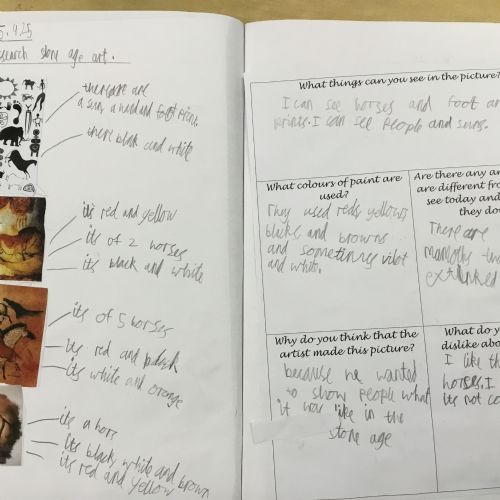 5.9.25
search stone age art.
there are
a suns, a hand and foot prints.
there black and white
it's red and yellow
its of 2 horses
it's black and white
its of 5 horses
its red and black
its white and orange
its a hors
Its black white and brown
its red and yellow
What things can you see in the picture?
I can see horses and foot an
prints. I can see People and suns.
What colours of paint are
used?
They used reds yellows
blacks and browns
and sometimes
and white.
Are there any an
are different fro
see today and
they do
There are
mamoths
Why do you think that the
artist made this picture?
because he wanted
to show People what
it was like in the
stone age
What do yo
dislike abou
I like th
horses. I
its not co